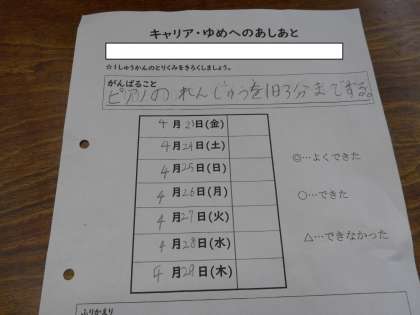 キャリア・ゆめへのあしあと
☆1しゅうかんのとりくみをきろくしましょう。
がんばること
ピアノの れんしゅうを1日3分までする。
4月23日(金)
4月24日(土)
4月25日(日)
4月26日(月)
4月27日(火)
4月28日(水)
4月29日(木)
◎…よくできた
○…できた
△…できなかった
ふりかえり